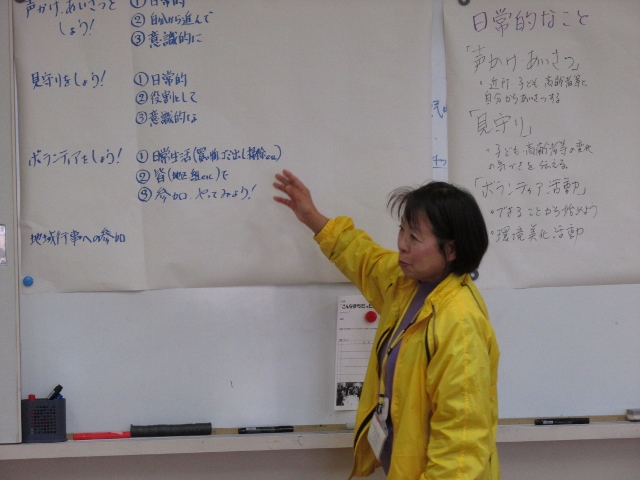 声かけ、あいさつを
しよう!
①日常的
②自分から進んで
③意識的に
見守りをしよう!
①日常的
②役割として
③意識的な
ボランティアをしよう!
①日常生活(買い物、ゴミ出し、掃除etc)
②皆(地区、組etc)で
③参加、やってみよう!
地域行事への参加
日常的なこと
「声かけ、あいさつ」
・近所、子ども、高齢者等に
自分からあいさつする
「見守り」
・子ども、高齢者等の変化
の気づきを伝える
「ボランティア活動」
・できることから始めよう
・環境美化活動